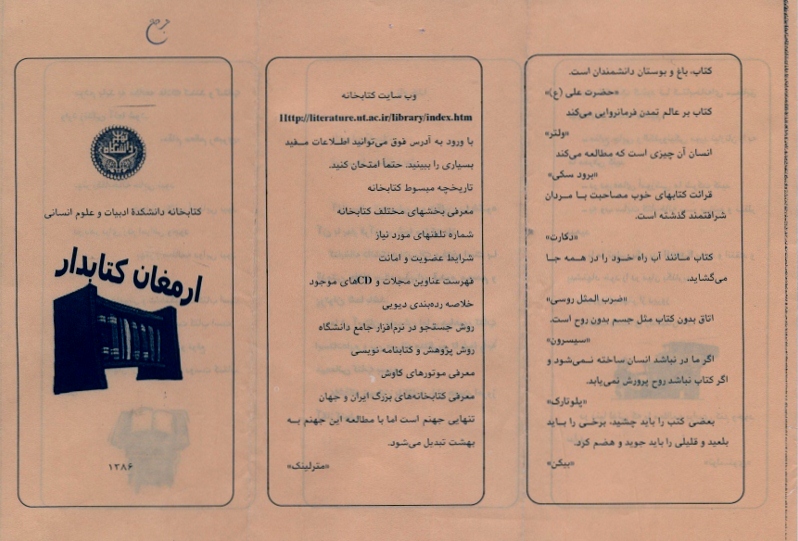 مرجع
کتاب، باغ و بوستان دانشمندان است.
«حضرت علی (ع)»
کتاب بر عالم تمدن فرمانروایی می‌کند
«ولتر»
انسان آن چیزی است که مطالعه می‌کند
«برود سکی»
قرائت کتابهای خوب مصاحبت با مردان
شرافتمند گذشته است.
«دکارت»
کتاب مانند آب راه خود را در همه جا
می‌گشاید.
«ضرب المثل روسی»
اتاق بدون کتاب مثل جسم بدون روح است.
«سیسرون»
اگر ما در نباشد انسان ساخته نمی‌شود و
اگر کتاب نباشد روح پرورش نمی‌یابد.
«پلوتارک»
بعضی کتب را باید چشید، برخی را باید
بلعید و قلیلی را باید جوید و هضم کرد.
«بیکن»
وب سایت کتابخانه
1Http://literature.ut.ac.ir/library/index.htm
با ورود به آدرس فوق می‌توانید اطلاعات مفید
بسیاری را ببینید. حتماً امتحان کنید.
تاریخچه مبسوط کتابخانه
معرفی بخشهای مختلف کتابخانه
شماره تلفنهای مورد نیاز
شرایط عضویت و امانت
فهرست عناوین مجلات و CDهای موجود
خلاصه رده‌بندی دیویی
روش جستجو در نرم‌افزار جامع دانشگاه
روش پژوهش و کتابنامه نویسی
معرفی موتورهای کاوش
معرفی کتابخانه‌های بزرگ ایران و جهان
تنهایی جهنم است اما با مطالعه این جهنم به
بهشت تبدیل می‌شود.
«مترلینک»
کتابخانه دانشکدهٔ ادبیات و علوم انسانی
ارمغان کتابدار
۱۳۸۶